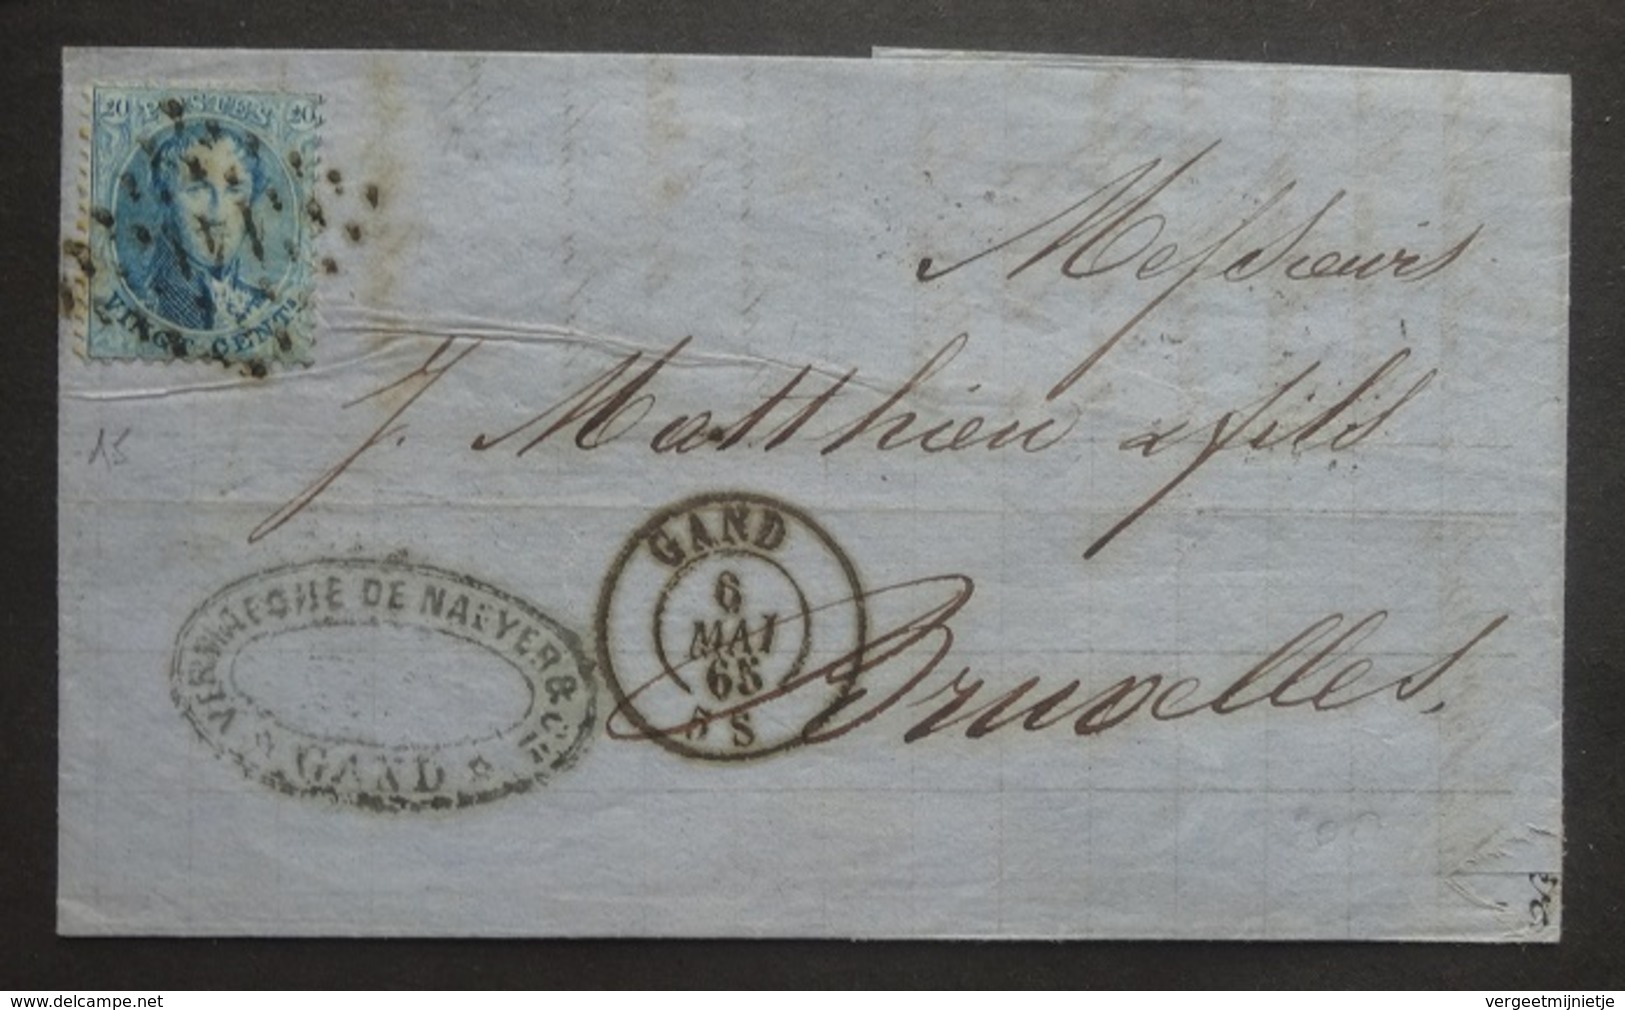 20 POSTES 20
VINGT CENTS
Messieurs
J. Matthieu & fils
Bruxelles.
GAND
6
MAI
65
5 S
VERMAESCHE DE NAEYER & Cie
GAND
15
www.delcampe.net
vergeetmijnietje